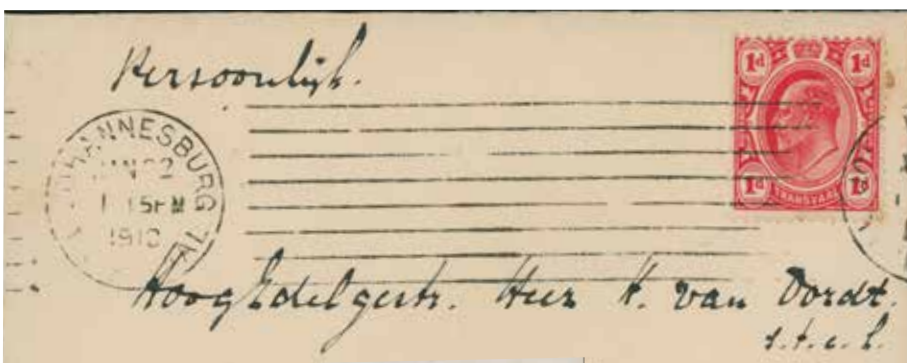 Persoonlijk.
1d 1d
JOHANNESBURG
JAN 22
15PM
1910
1d 1d
TRANSVAAL
HoogEdelgestr. Heer H. van Oordt.